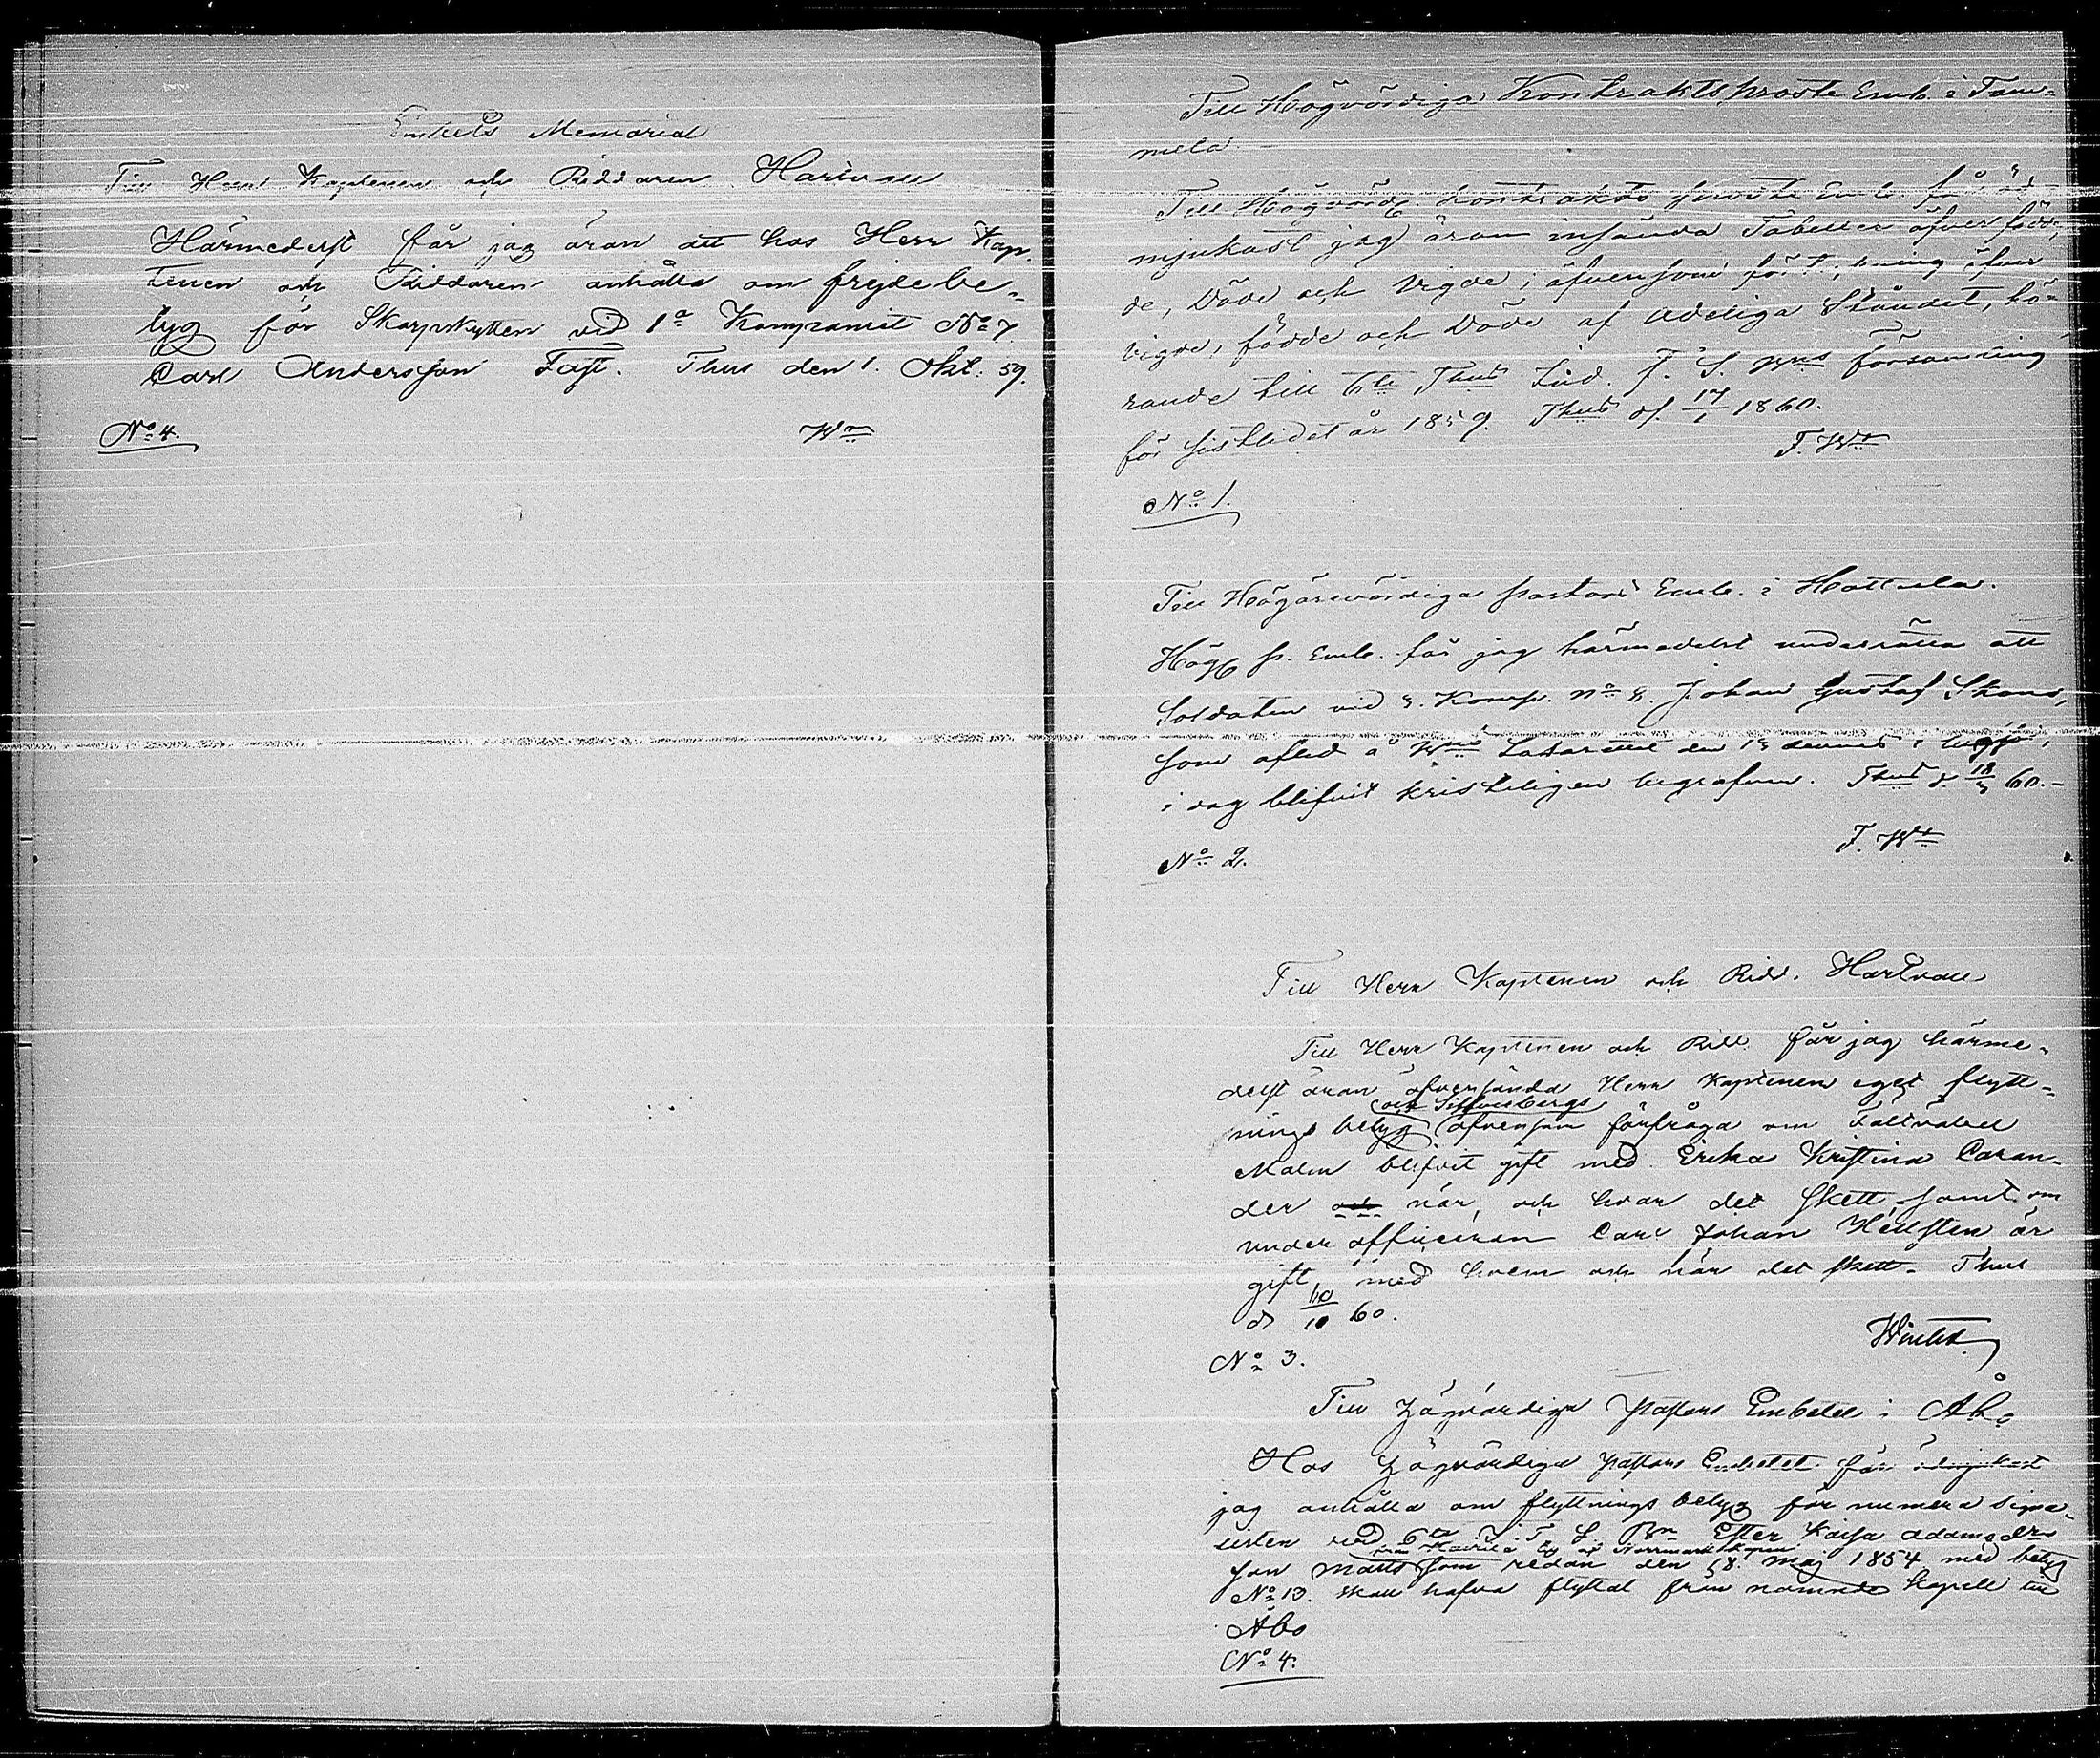 Enkelt Memorial
Till Herr Kaptenen och Riddaren Hartvall
Härmedelst får jag äran att hos Herr Kap-
tenen och Riddaren anhålla om frejdebe-
tyg för Skarpskytten vid 1a Kompaniet No 7
Carl Andersson Fast. Thus den 1. Okt. 59.
No 4. Wm
Till Högvördiga Kontraktsprosts Emb. i Tam-
mela.
Till Högvörd. Kontrakts prosts Emb. får öd-
mjukast jag äran insända Tabeller öfver föd-
de, Döde och Vigde; äfvensom förteckning öfver
vigde, födde och Döde af Adeliga Ståndet, hö-
rande till 6te Thus Ind. F. S. Bns församling
för sistlidet år 1859. Thus d. 17/1 1860.
F. Wtr
No 1.
Till Högärevördiga Pastors Emb. i Hattula.
Hög P. Emb. får jag härmedelst underrätta att
Soldaten vid 3. Komp. No 8. Johan Gustaf Skans,
som afled å Bns Lasarettet den 13 dennes i
i dag blifvit kristeligen begrafven. Thus d. 18/3 60.-
F. Wtr
No 2.
Till Herr Kaptenen och Ridd. Hartvall
Till Herr Kaptenen och Ridd. får jag härme-
delst äran öfversända Herr Kaptenen eget flytt-
och Silfverbergs
nings betyg äfvensom förfråga om Fältväbel
Malin blifvit gift med Erika Kristina Caran-
der och när, och hvar det skett, samt om
under officeren Carl Johan Hellsten är
gift, med hvem och när det skett. Thus
d 10/10 60.
Winter
No 3.
Till Högvördiga Pastors Embetet i Åbo
Hos Högvördiga Pastors Embetet får ödmjukast
jag anhålla om flyttnings betyg för numera signa-
listen vid 6te J. F. S. Bn Efter Kaisa Adamsders
från Norrmark Kapell
son Matts som redan den 18 Maj 1854 med betyg
No 13. skall hafva flyttat från nämnde kapell till
Åbo
No 4.